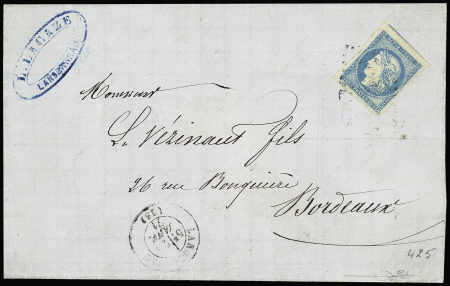 L. LACAZE
LANDERNEAU
Monsieur
L. Vézinaut fils
26 rue Bouquière
Bordeaux
425